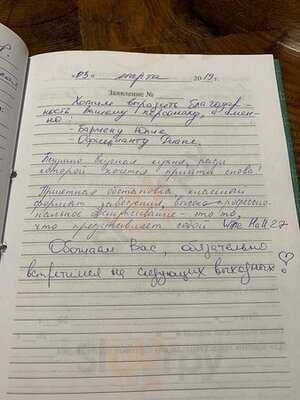 «03» марта 2019 г.
Заявление №
Хотим выразить благодар-
ность вашему персоналу, а имен-
но:
- Бармену Юлие
- Официанту Диане.
вкусная кухня, ради
которой хочется прийти снова!
Приятная обстановка, классный
формат заведения, высоко-професио-
нальное обслуживание - это то,
что представляет собой Wine Hall 27
Обожаем Вас, обязательно
встретимся на следующих выходных!